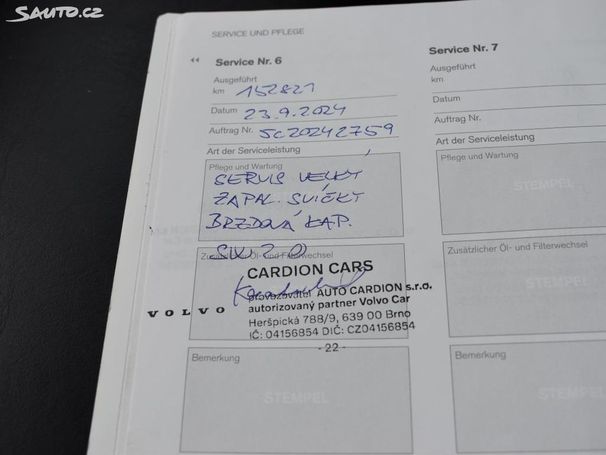 SAUTO.CZ
SERVICE UND PFLEGE
Service Nr. 6
Ausgeführt
km 152821
Datum 23.9.2024
Auftrag Nr. SC20242759
Art der Serviceleistung
Pflege und Wartung
SERVIS VELKÝ
ZAPAL. SVÍČKY
BRZDOVÁ KAP.
Zusätzlicher Öl- und Filterwechsel
CARDION CARS
provozovatel AUTO CARDION s.r.o.
autorizovaný partner Volvo Car
Heršpická 788/9, 639 00 Brno
IČ: 04156854 DIČ: CZ04156854
VOLVO
- 22 -
Bemerkung
STEMPEL
Service Nr. 7
Ausgeführt
km
Datum
Auftrag Nr.
Art der Serviceleistung
Pflege und Wartung
STEMPEL
Zusätzlicher Öl- und Filterwechsel
STEMPEL
Bemerkung
STEMPEL